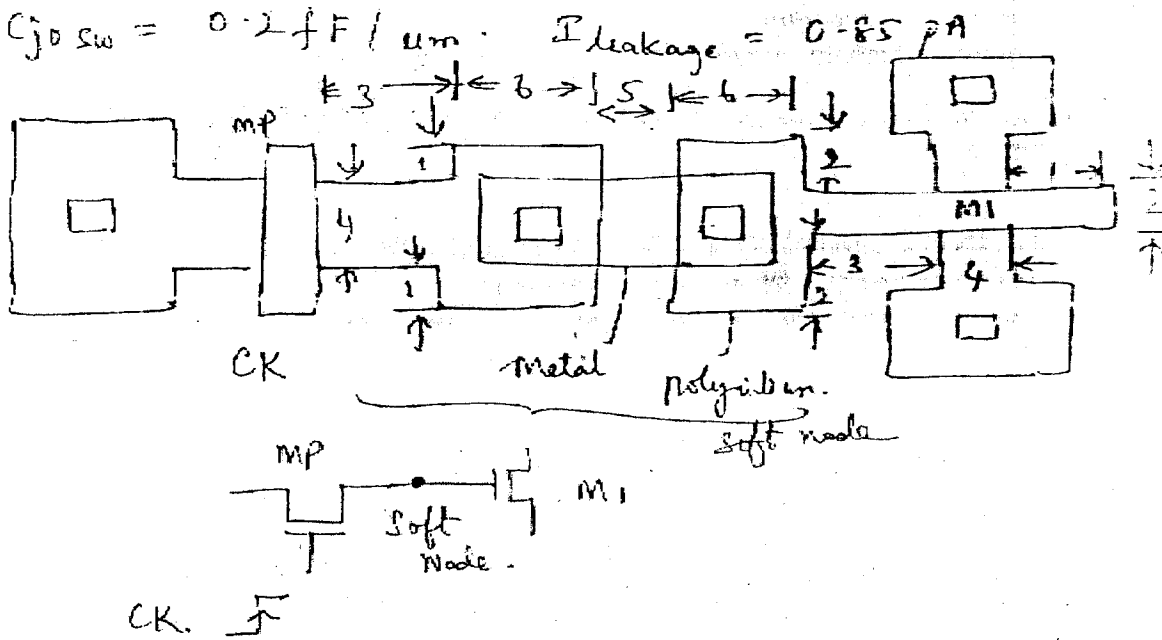 Cjo sw = 0.2 fF / um. I leakage = 0.85 pA
3 6 5 6
MP
1 2
4 M1 1 2
1 3 4
2
CK Metal polysilicon.
soft node
MP
M1
Soft Node.
CK.